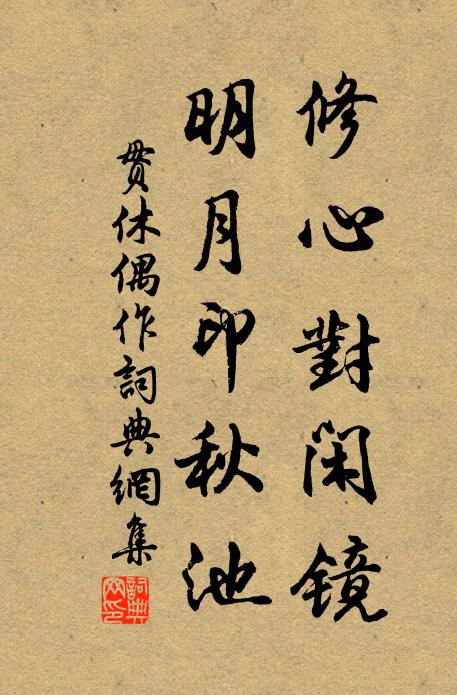 修心對閑鏡
明月印秋池
貫休偶作詞典網集
詞典网印